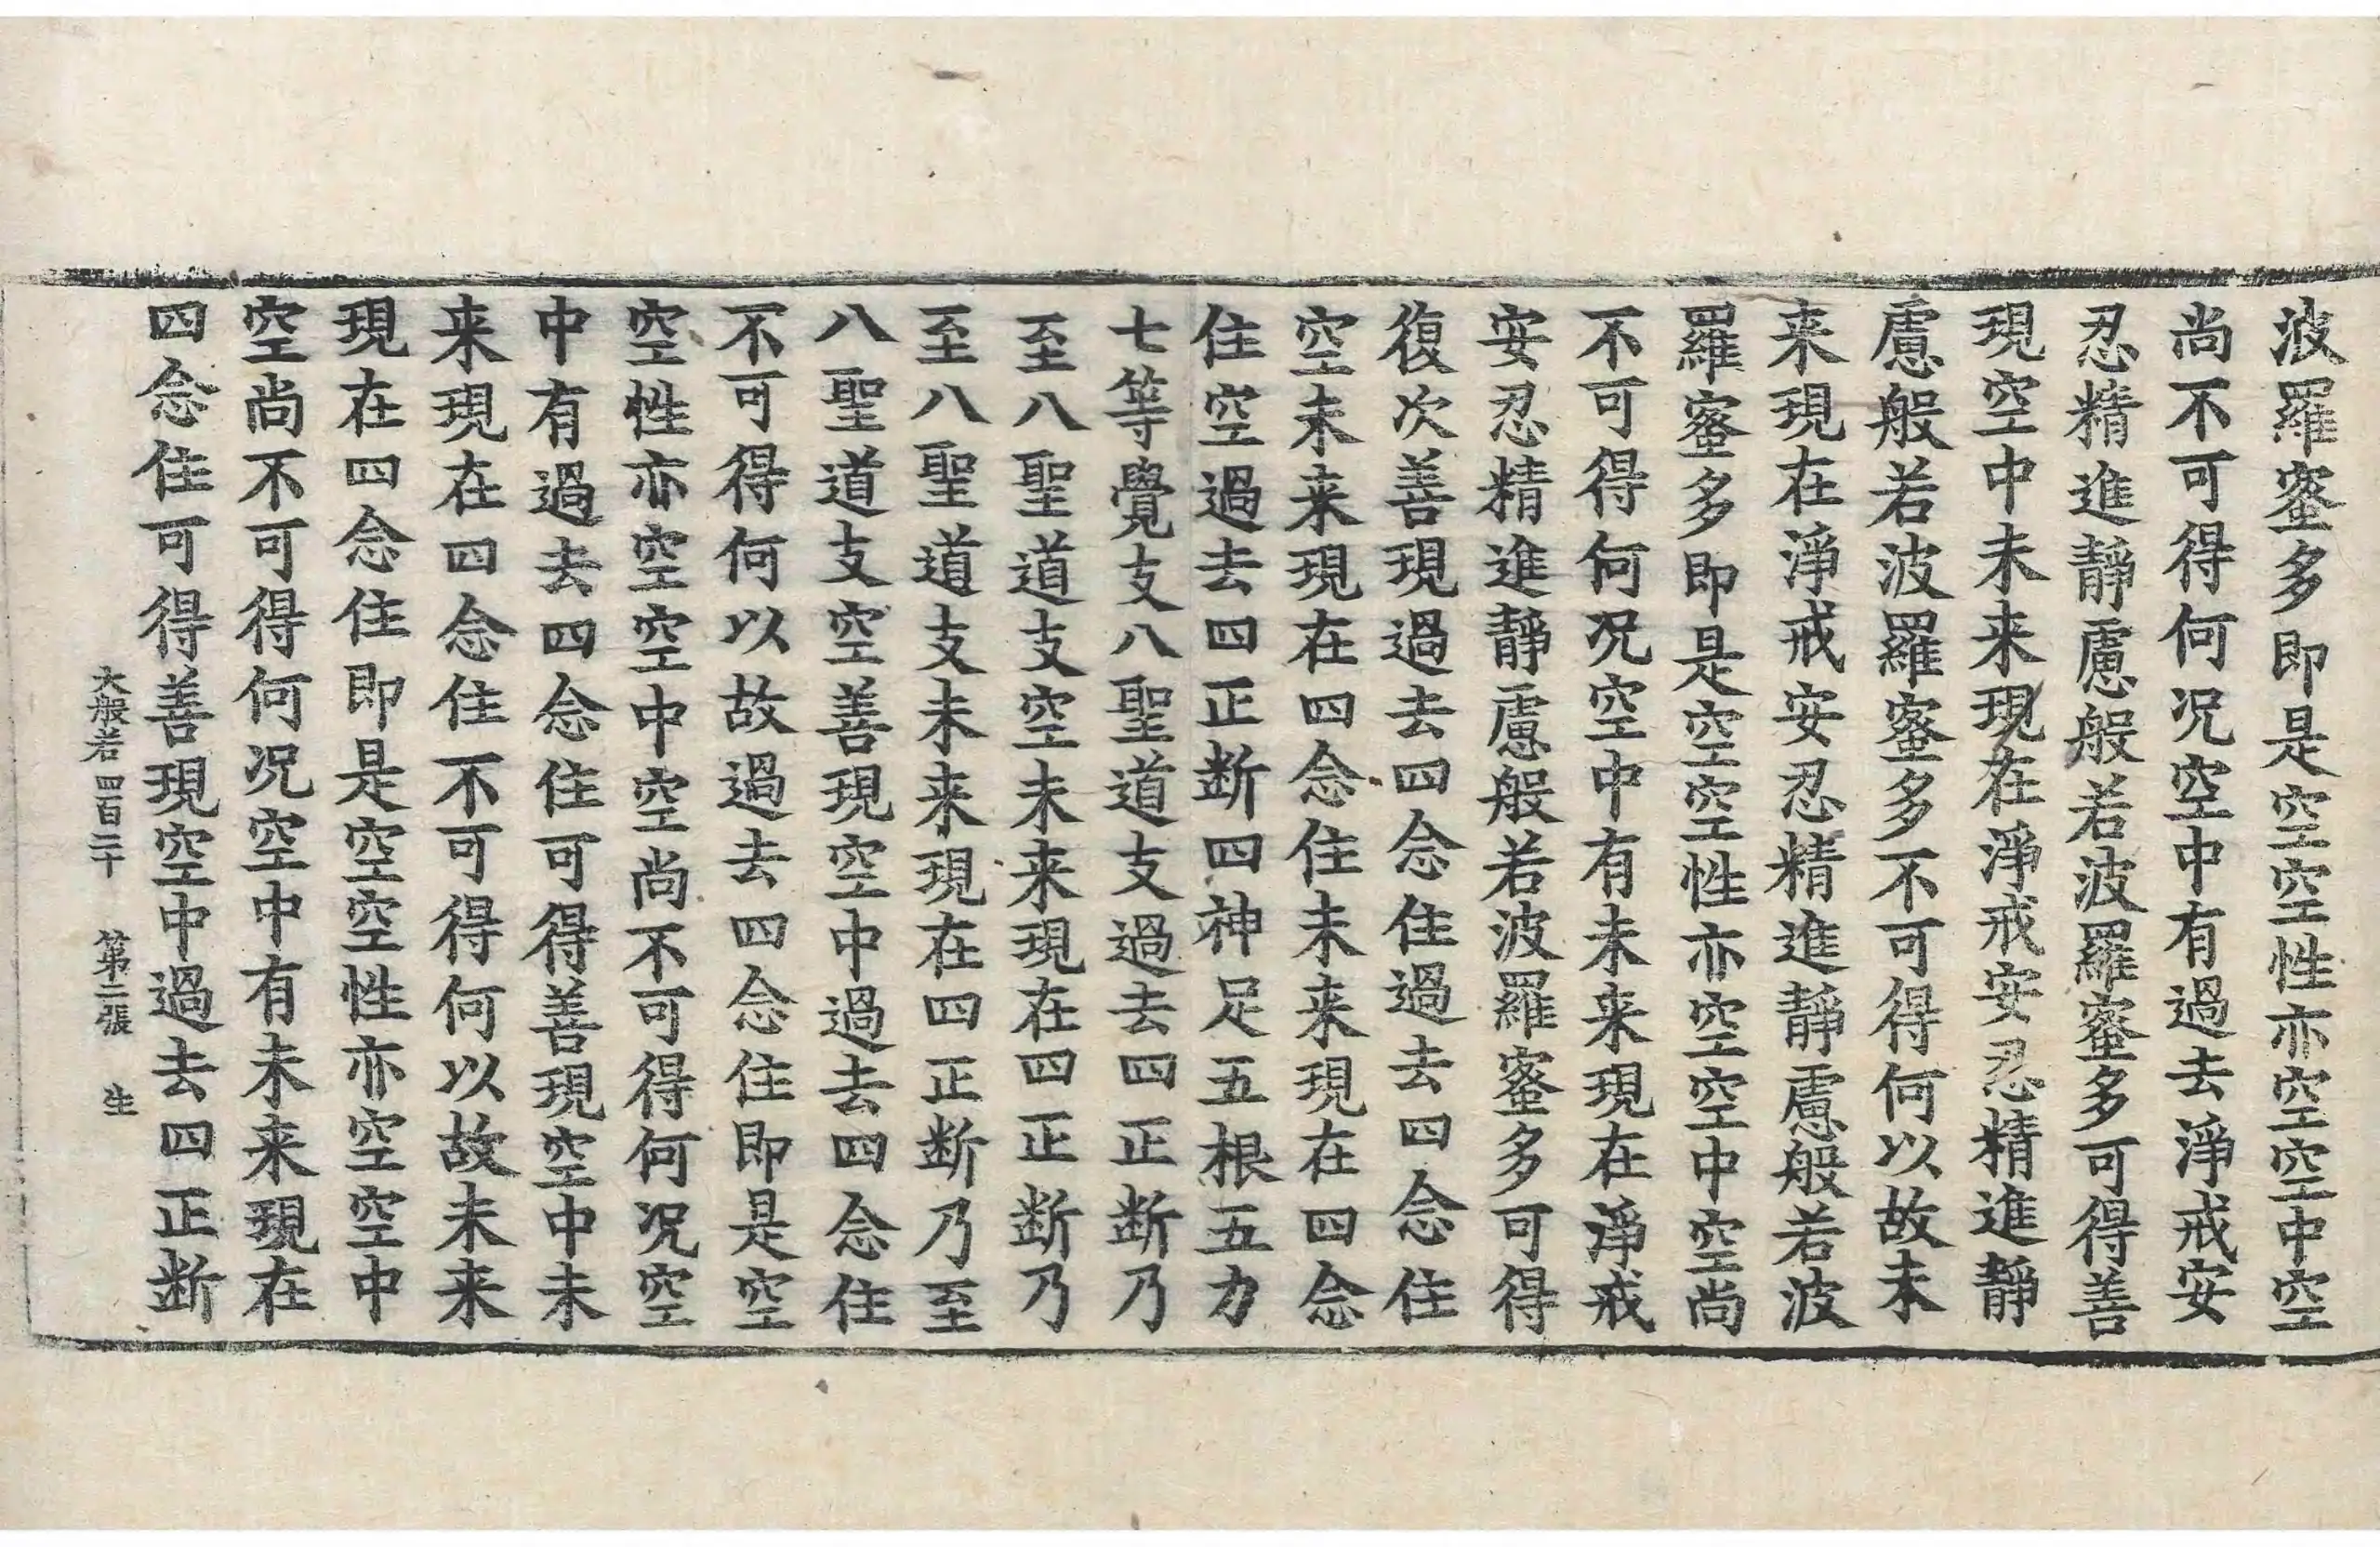 波羅蜜多即是空空性亦空空中空
尚不可得何况空中有過去淨戒安
忍精進靜慮般若波羅蜜多可得善
現空中未来現在淨戒安忍精進靜
慮般若波羅蜜多不可得何以故未
来現在淨戒安忍精進靜慮般若波
羅蜜多即是空空性亦空空中空尚
不可得何况空中有未来現在淨戒
安忍精進靜慮般若波羅蜜多可得
復次善現過去四念住過去四念住
空未来現在四念住未来現在四念
住空過去四正断四神足五根五力
七等覺支八聖道支過去四正断乃
至八聖道支空未来現在四正断乃
至八聖道支未来現在四正断乃至
八聖道支空善現空中過去四念住
不可得何以故過去四念住即是空
空性亦空空中空尚不可得何况空
中有過去四念住可得善現空中未
来現在四念住不可得何以故未来
現在四念住即是空空性亦空空中
空尚不可得何况空中有未来現在
四念住可得善現空中過去四正断
大般若四百二十 第二張 生